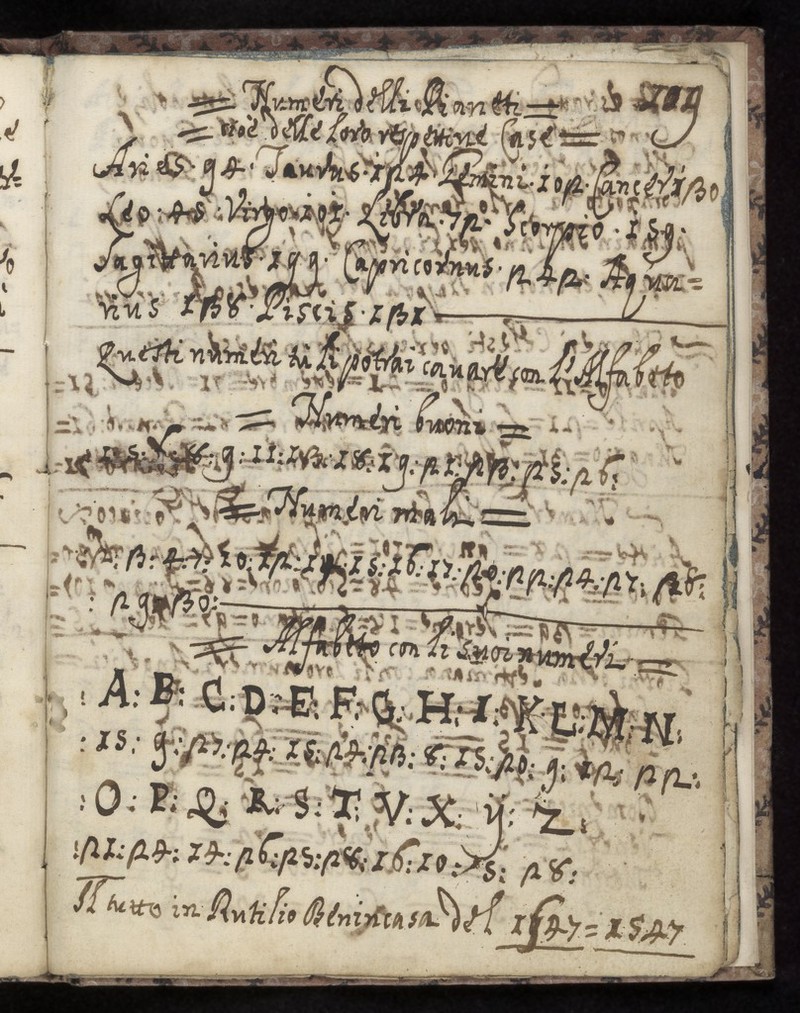 = Numeri delli Pianeti = 109
= cioè delle loro respettive Case =
Aries · 94 · Taurus · 124 Gemini · 102 · Cancer 130
Leo · 45 · Virgo · 101 · Libra · 72 · Scorpio · 159 ·
Sagittarius · 199 · Capricornus · 242 · Aqua=
rius 138 · Piscis · 131
Questi numeri tu li potrai cavare con l'Alfabeto
= Numeri buoni =
9: 11: 13: 18: 19: 21: 23: 25: 26:
= Numeri mali =
3: 4: 7: 10: 12: 14: 15: 16: 17: 20: 22: 24: 27: 28:
: 29: 30:
= Alfabeto con li suoi numeri =
: A: B: C: D: E: F: G: H: I: K: L: M: N:
: 15: 9: 27: 24: 15: 24: 23: 8: 15: 20: 9: 12: 22:
: O: P: Q: R: S: T: V: X: y: Z:
: 21: 24: 14: 26: 25: 28: 16: 10: 15: 28:
Il tutto in Rutilio Benincasa del 1547 = 1547